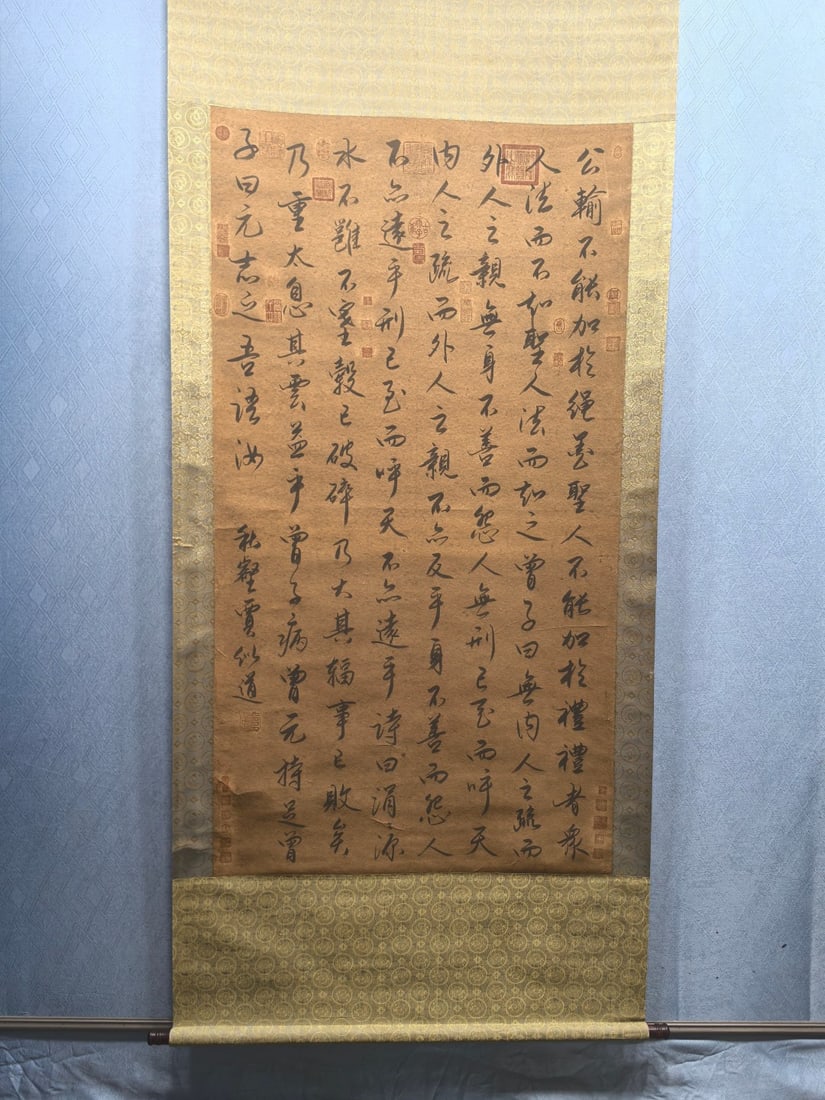 公輸不能加於繩墨聖人不能加於禮禮者眾
人法而不知聖人法而知之曾子曰無內人之疏而
外人之親無身不善而怨人無刑已至而呼天
內人之疏而外人之親不亦反乎身不善而怨人
不亦遠乎刑已至而呼天不亦遠乎詩曰涓源
水不雝不塞轂已破碎乃大其輻事已敗矣
乃重太息其雲益乎曾子病曾元持足曾
子曰元志之吾語汝
秋壑賈似道